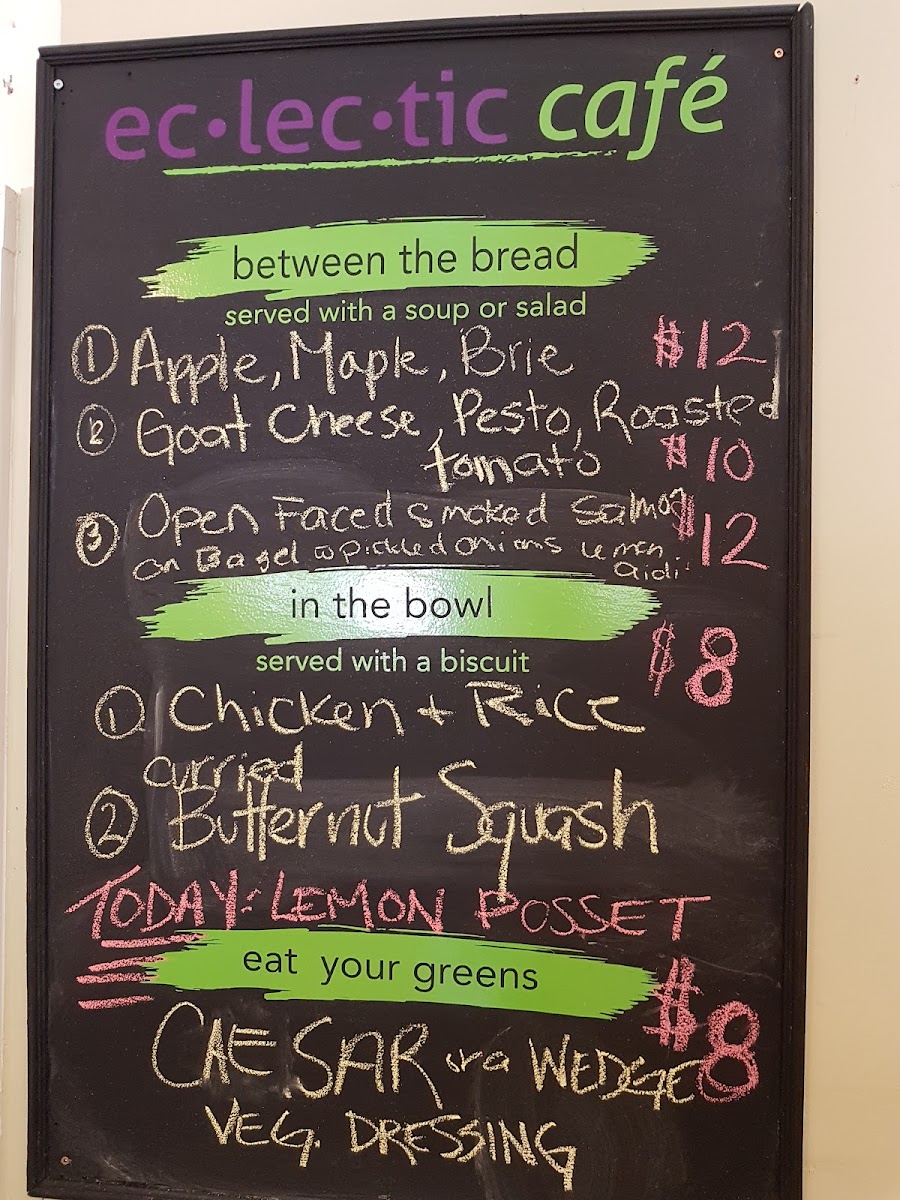 ec•lec•tic café
between the bread
served with a soup or salad
① Apple, Maple, Brie $12
② Goat Cheese, Pesto, Roasted
tomato $10
③ Open Faced smoked salmon $12
on Bagel w pickled onions lemon
in the bowl
served with a biscuit
$8
① Chicken + Rice
curried
② Butternut Squash
TODAY: LEMON POSSET
eat your greens
$8
CAESAR or a WEDGE
VEG. DRESSING